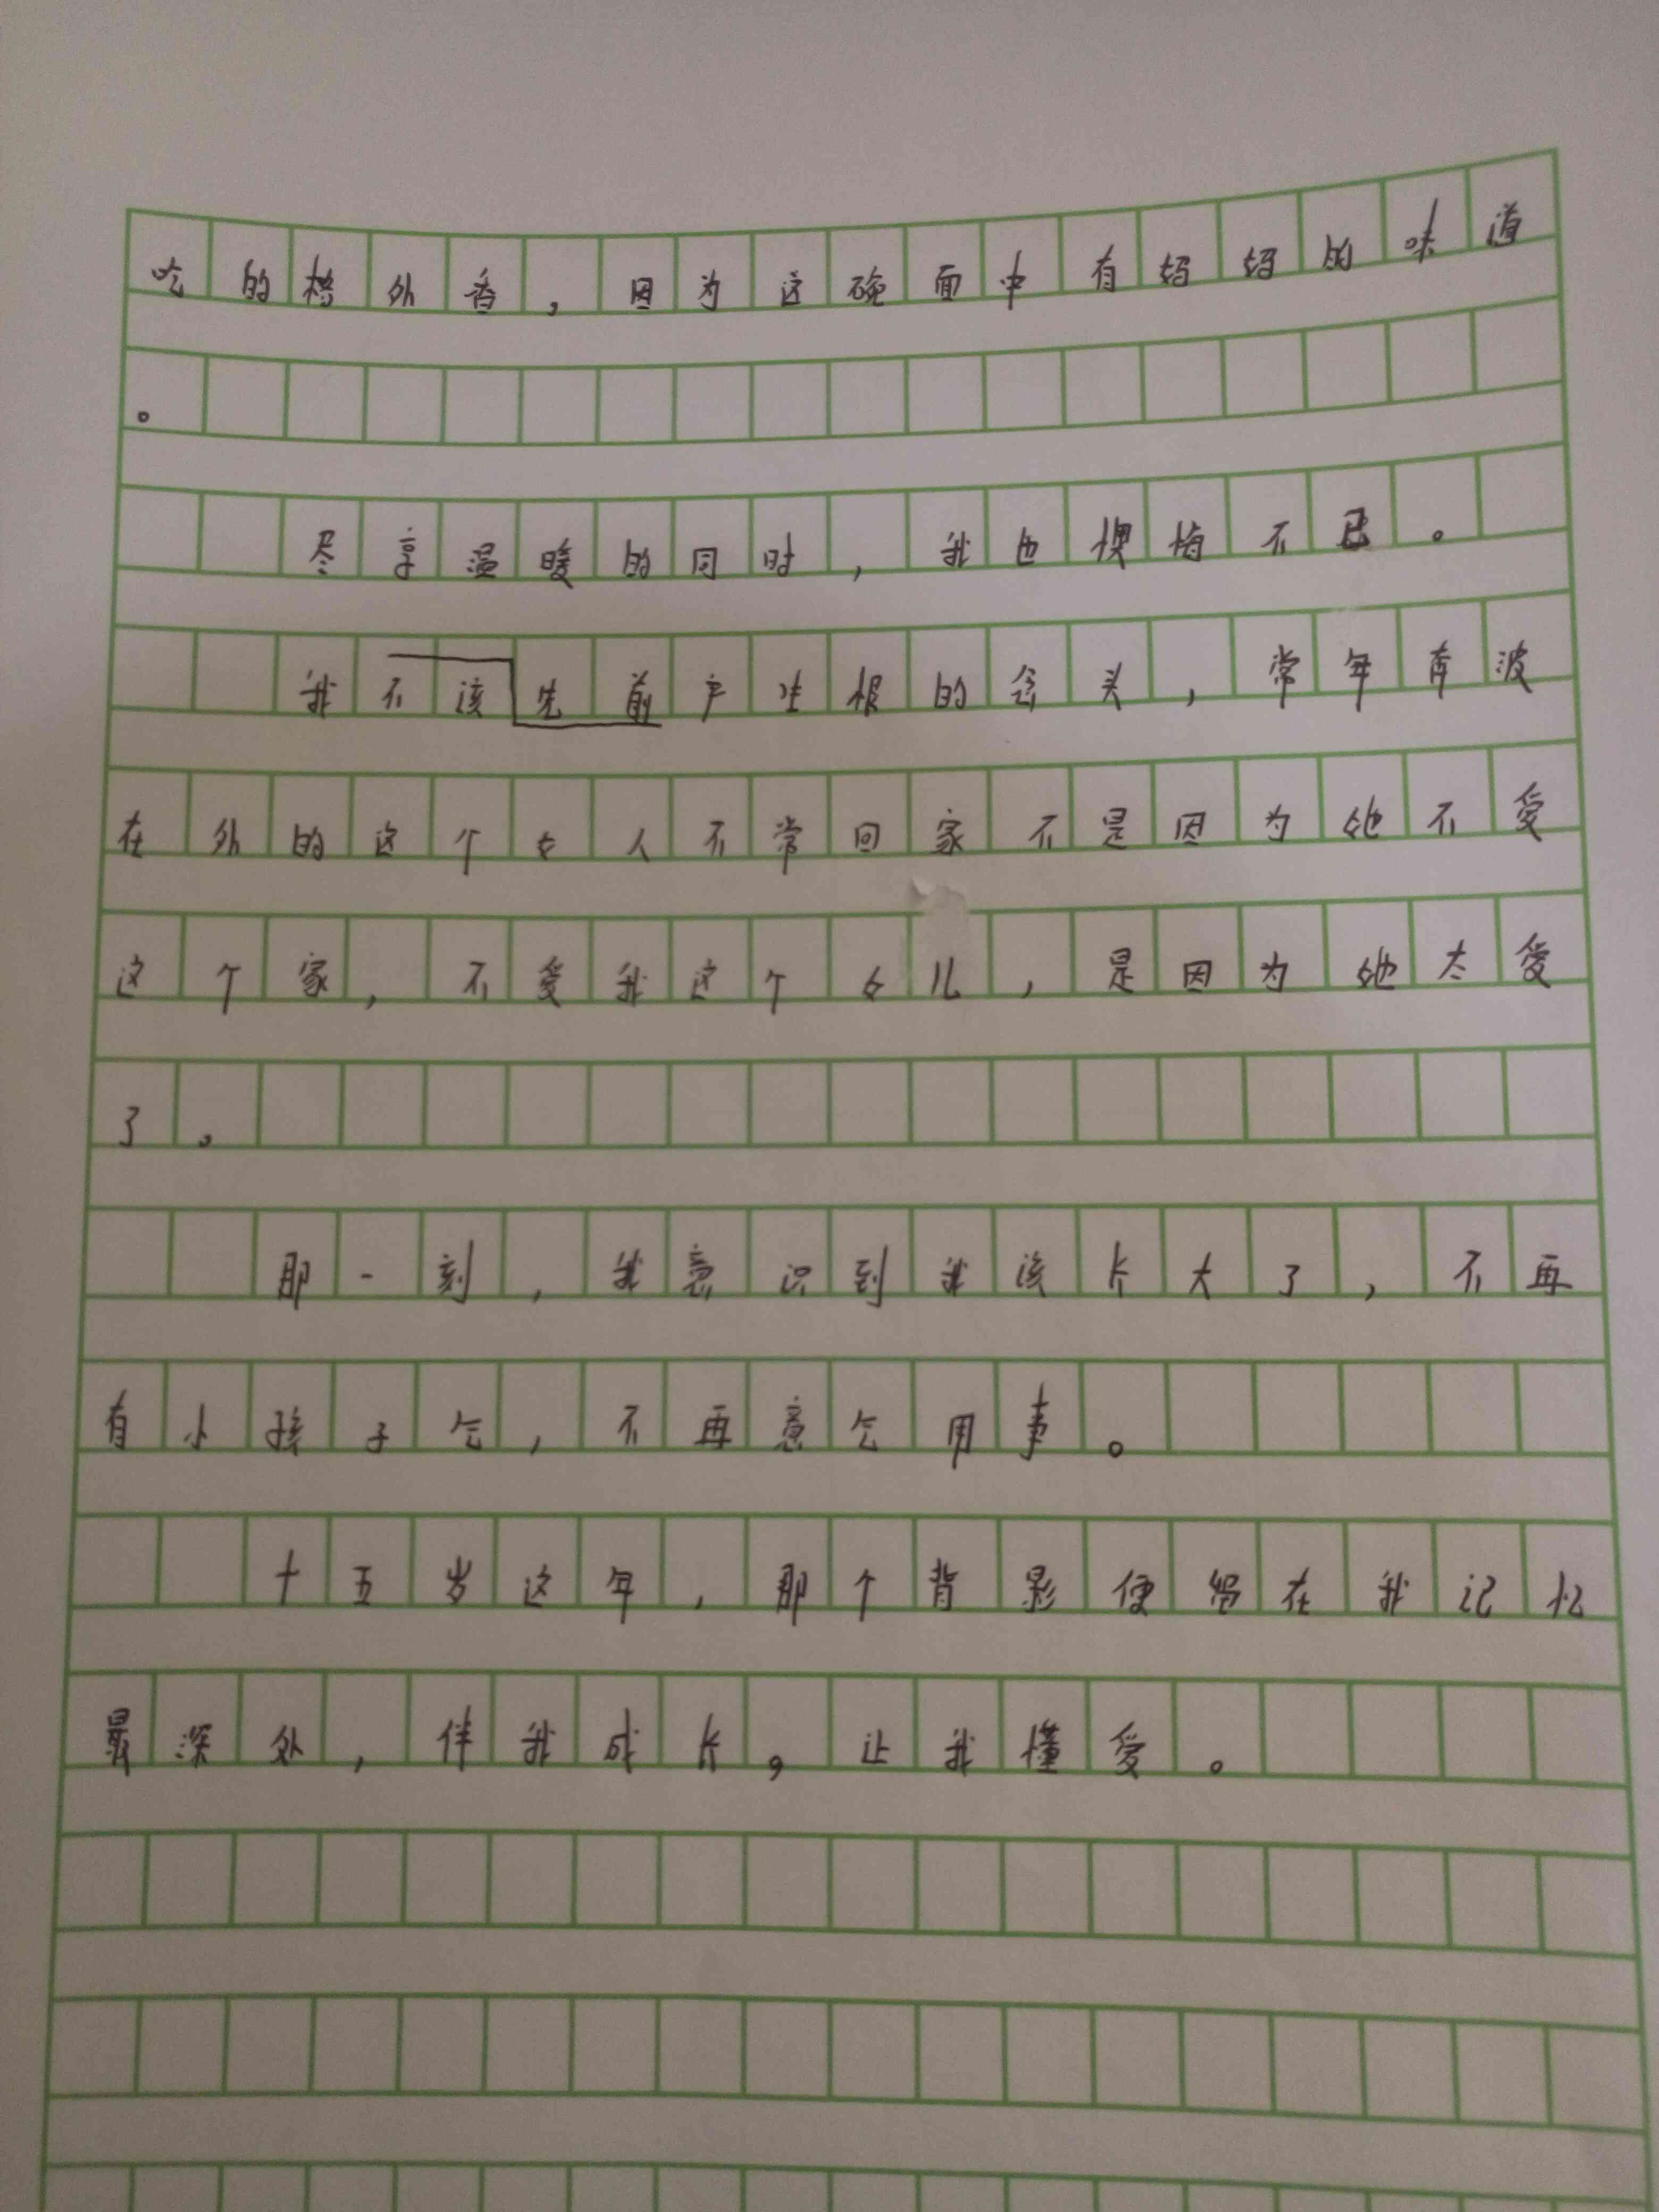 吃的格外香，因为这碗面中有妈妈的味道
。
尽享温暖的同时，我也懊悔不已。
我不该先前产生恨的念头，常年奔波
在外的这个女人不常回家不是因为她不爱
这个家，不爱我这个女儿，是因为她太爱
了。
那一刻，我意识到我该长大了，不再
有小孩子气，不再意气用事。
十五岁这年，那个背影便留在我记忆
最深处，伴我成长，让我懂爱。